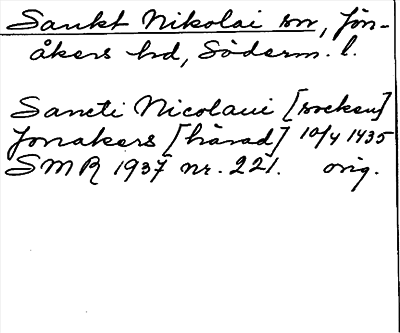 Sankt Nikolai sn, Jön-
åkers hd, Söderm. l.
Sancti Nicolaui [socken]
Jonakers [härad] 10/4 1435
SMR 1937 nr. 221. orig.